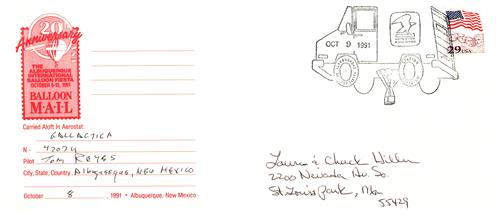 20th
Anniversary
THE
ALBUQUERQUE
INTERNATIONAL
BALLOON FIESTA
OCTOBER 5-13, 1991
BALLOON
M·A·I·L
Carried Aloft In Aerostat:
GALLACTICA
N - 4207U
Pilot TOM REYES
City, State, Country Albuquerque, NEW MEXICO
October 8, 1991 • Albuquerque, New Mexico
OCT 9 1991
29 USA
Laura & Chuck
2200 Nevada Av. So.
St. Louis Park, Mn
55429